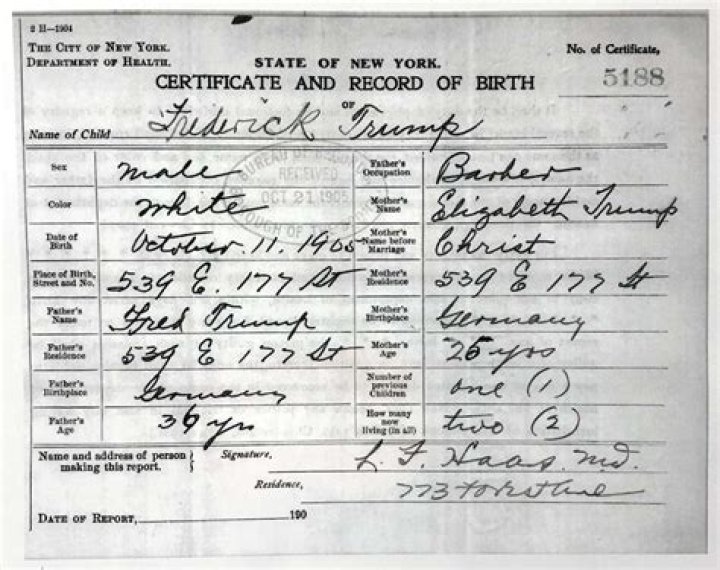 2 H—1904
THE CITY OF NEW YORK.
DEPARTMENT OF HEALTH.
STATE OF NEW YORK.
No. of Certificate,
5188
CERTIFICATE AND RECORD OF BIRTH
OF
Name of Child Frederick Trump
Sex male
Father's Occupation Barber
BUREAU OF RECORDS
RECEIVED
OCT 21 1905
BOROUGH OF THE
Color White
Mother's Name Elizabeth Trump
Date of Birth October. 11. 1905
Mother's Name before Marriage Christ
Place of Birth, Street and No. 539 E. 177 St
Mother's Residence 539 E 177 St
Father's Name Fred Trump
Mother's Birthplace Germany
Father's Residence 539 E 177 St
Mother's Age 25 yrs
Father's Birthplace Germany
Number of previous Children one (1)
Father's Age 36 yrs
How many now living (in all) two (2)
Name and address of person making this report.
Signature, L. F. Haas. M.D.
Residence, 773 Forest Ave
DATE OF REPORT, 190